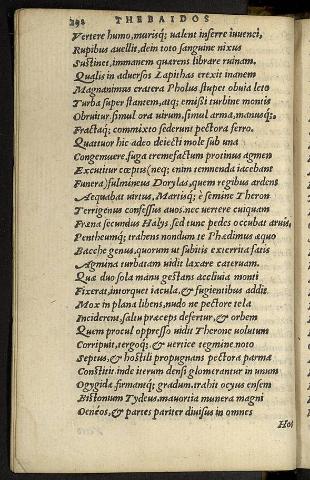 298 THEBAIDOS
Vertere humo, murisq; ualent inferre iuuenci,
Rupibus auellit, dein toto sanguine nixus
Sustinet, immanem quærens librare ruinam.
Qualis in aduersos Lapithas erexit inanem
Magnanimus cratera Pholus stupet obuia leto
Turba super stantem, atq; emissi turbine montis
Obruitur, simul ora uirum, simul arma, manusq;,
Fractaq; commixto sederunt pectora ferro.
Quatuor hic adeo deiecti mole sub una
Congemuere, fuga tremefactum protinus agmen
Excutitur cœptis (neq; enim temnenda iacebant
Funera) fulmineus Dorylas, quem regibus ardens
Aequabat uirtus, Martisq; è semine Theron
Terrigenas confessus auos, nec uertere cuiquam
Fræna secundus Halys, sed tunc pedes occubat aruis,
Pentheumq; trahens nondum te Phædimus æquo
Bacche genus, quorum ut subitis exterrita fatis
Agmina turbatam uidit laxare cateruam.
Quæ duo sola manu gestans accliuia monti
Fixerat, intorquet iacula, & fugientibus addit.
Mox in plana libens, nudo ne pectore tela
Inciderent, saltu præceps defertur, & orbem
Quem procul oppresso uidit Therone uolutum
Corripuit, tergoq; & uertice tegmine noto
Septus, & hostili propugnans pectora parma
Constitit. inde iterum densi glomerantur in unum
Ogygidæ, firmantq; gradum. trahit ocyus ensem
Bistonium Tydeus, mauortia munera magni
Oeneos, & partes pariter diuisus in omnes
Hos